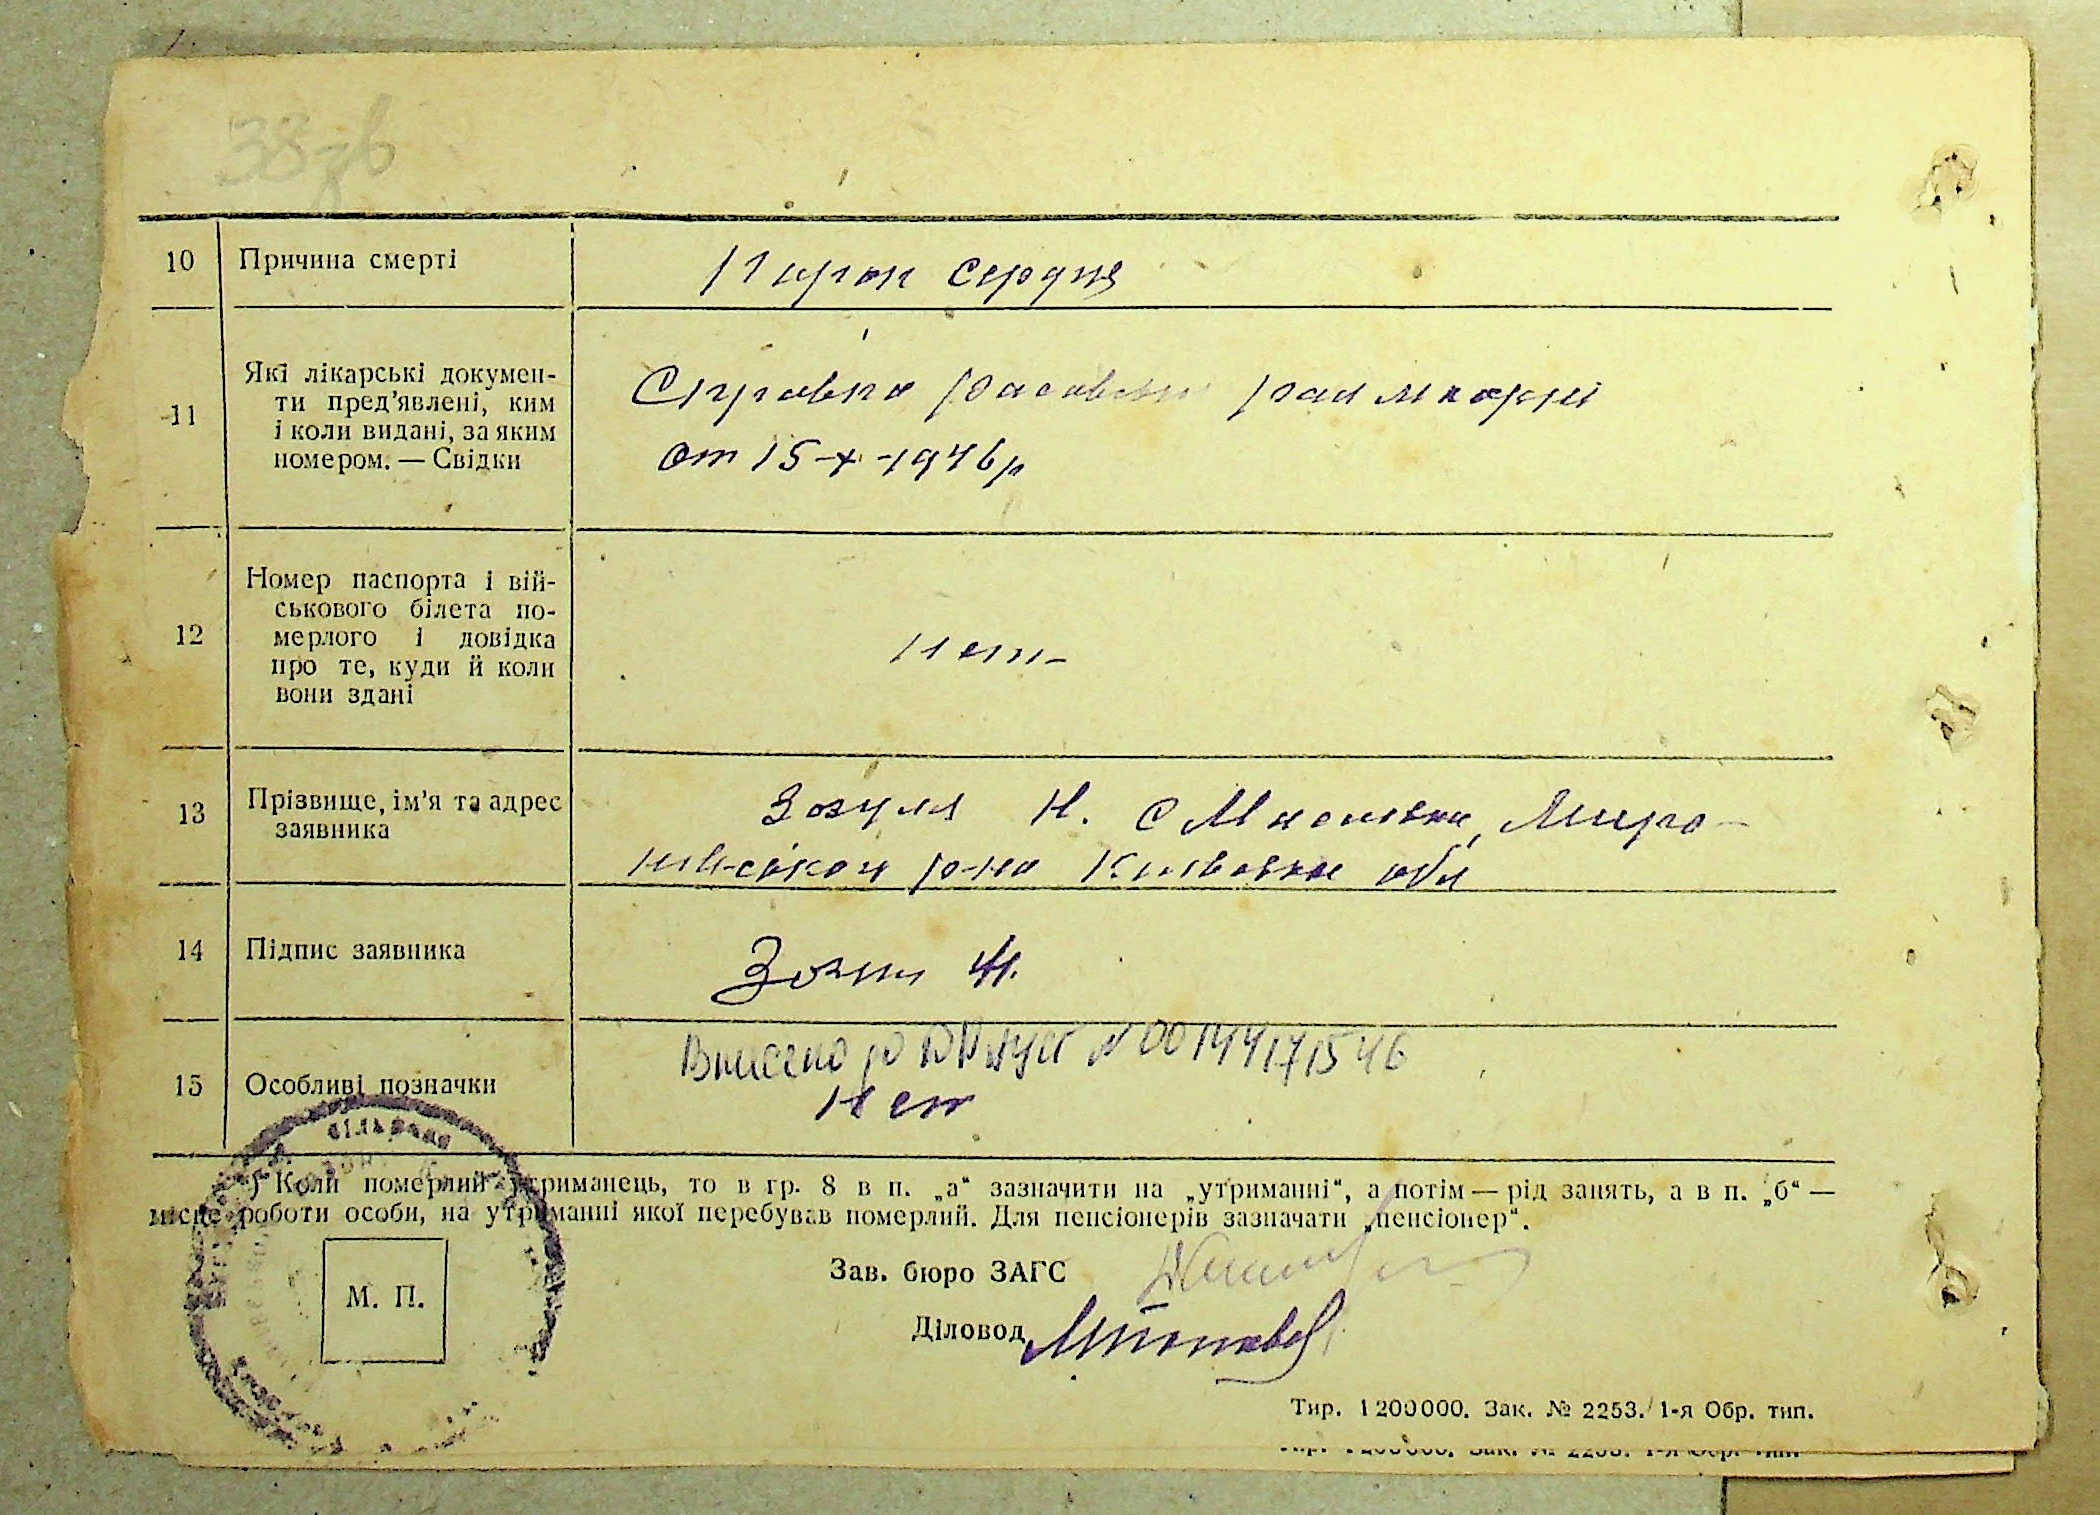 38зв
10 Причина смерті
Порок сердця
11 Які лікарські докумен-
ти пред'явлені, ким
і коли видані, за яким
номером. — Свідки
Справка
от 15-X-1946 р
12 Номер паспорта і вій-
ськового білета по-
мерлого і довідка
про те, куди й коли
вони здані
нет
13 Прізвище, ім'я та адрес
заявника
Зозуля Н. с Миро-
р-на обл
14 Підпис заявника
15 Особливі позначки
Внесено до N 00144171546
нет
) Коли померлий утриманець, то в гр. 8 в п. „а“ зазначити на „утриманні“, а потім — рід занять, а в п. „б“ —
місце роботи особи, на утриманні якої перебував померлий. Для пенсіонерів зазначати „пенсіонер“.
М. П.
Зав. бюро ЗАГС
Діловод
Тир. 1 200 000. Зак. № 2253. 1-я Обр. тип.